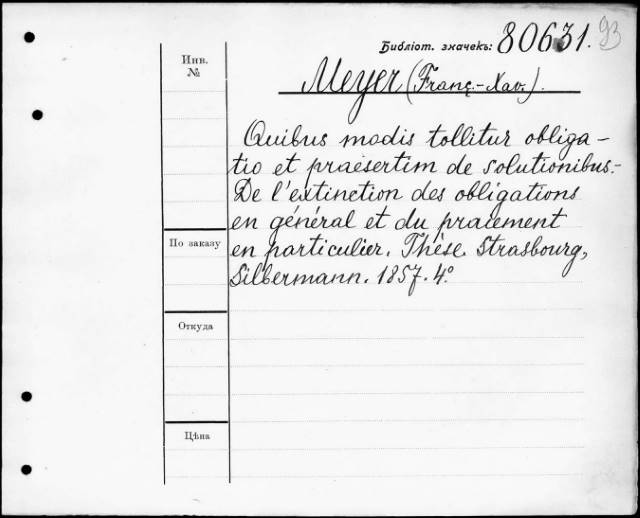 Библіот. значекъ: 80631. 93
Инв. №
Meyer (Franç.-Xav.).
Quibus modis tollitur obliga-
tio et praesertim de solutionibus.-
De l'extinction des obligations
en général et du praiement
По заказу
en particulier. Thèse. Strasbourg,
Silbermann. 1857. 4°
Откуда
Цѣна